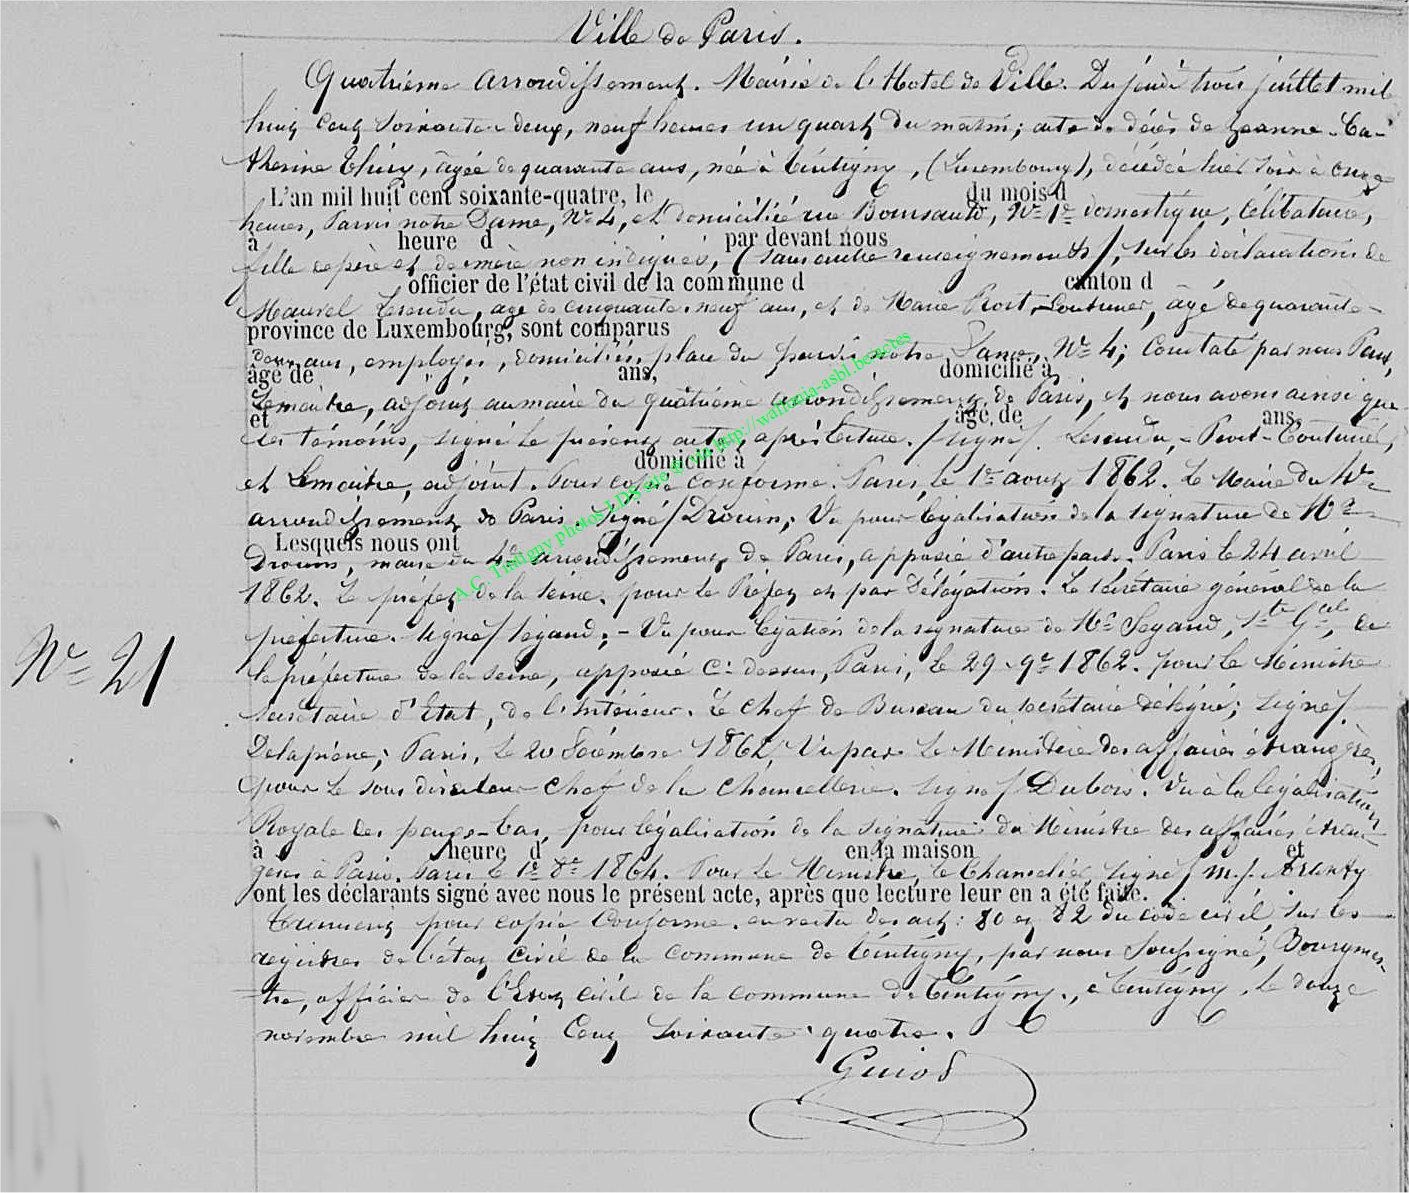 Ville de Paris.
Quatrième arrondissement. Mairie de l'Hotel de Ville. Du jeudi trois juillet mil
huit cent soixante-deux, neuf heures un quart du matin; acte de décès de Jeanne-Ca-
therine Thiry, âgée de quarante ans, née à Tintigny, (Luxembourg), décédée hier soir à onze
L'an mil huit cent soixante-quatre, le du mois d
heures, Parvis notre Dame, N° 4, et domiciliée rue Boursault, N° 1er domestique, célibataire,
à heure d par devant nous
fille de père et de mère non indiqués, (sans autre renseignements), sur les déclarations de
officier de l'état civil de la commune d canton d
âgé de cinquante-neuf ans, et de Marie Couturier, âgé de quarante-
province de Luxembourg, sont comparus
deux ans, employés, domiciliés, place du parvis notre Dame, N° 4; Constaté par nous
âgé de ans, domicilié à
Lemaitre, adjoint au maire du quatrième arrondissement de Paris, et nous avons ainsi que
et âgé de ans,
les témoins, signé le présent acte, après lecture. /signé/
domicilié à
et Lemaitre, adjoint. Pour copie conforme. Paris, le 1er août 1862. Le Maire du IVe
arrondissement de Paris. Signé/ Drouin; Vu pour légalisation de la signature de Mr
Lesquels nous ont
Drouin, maire du 4e arrondissement de Paris, apposée d'autre part. Paris le 24 avril
1862. Le préfet de la Seine. pour le Préfet et par Délégation. Le secrétaire général de la
préfecture. signé/ Segaud; - Vu pour légation de la signature de Mr Segaud, Ste Gal, de
N° 21
la préfecture de la Seine, apposée Ci-dessus, Paris, le 29 9re 1862. pour le Ministre
secrétaire d'Etat, de l'Intérieur. Le Chef de Bureau du secrétaire délégué; signé/.
Paris, le 20 Décembre 1862, Vu par le Ministère des affaires étrangères,
pour le sous directeur Chef de la Chancellerie. signé/ Dubois. Vu à la légalisation
Royale des payes-bas, pour légalisation de la signature du Ministre des affaires étran-
à heure d en la maison et
gères à Paris. Paris le 1er 8re 1864. Pour le Ministre, le Chancelier signé/ M. J.
ont les déclarants signé avec nous le présent acte, après que lecture leur en a été faite.
pour copie conforme. en vertu des art: 80 et 82 du code civil sur les
registres de l'état civil de la commune de Tintigny, par nous soussigné, Bourgmes-
tre, officier de l'Etat civil de la commune de Tintigny., à Tintigny, le douze
novembre mil huit cent soixante-quatre.
Guiot
A.C. Tintigny photos LDS via http://wallonia-asbl.be/actes